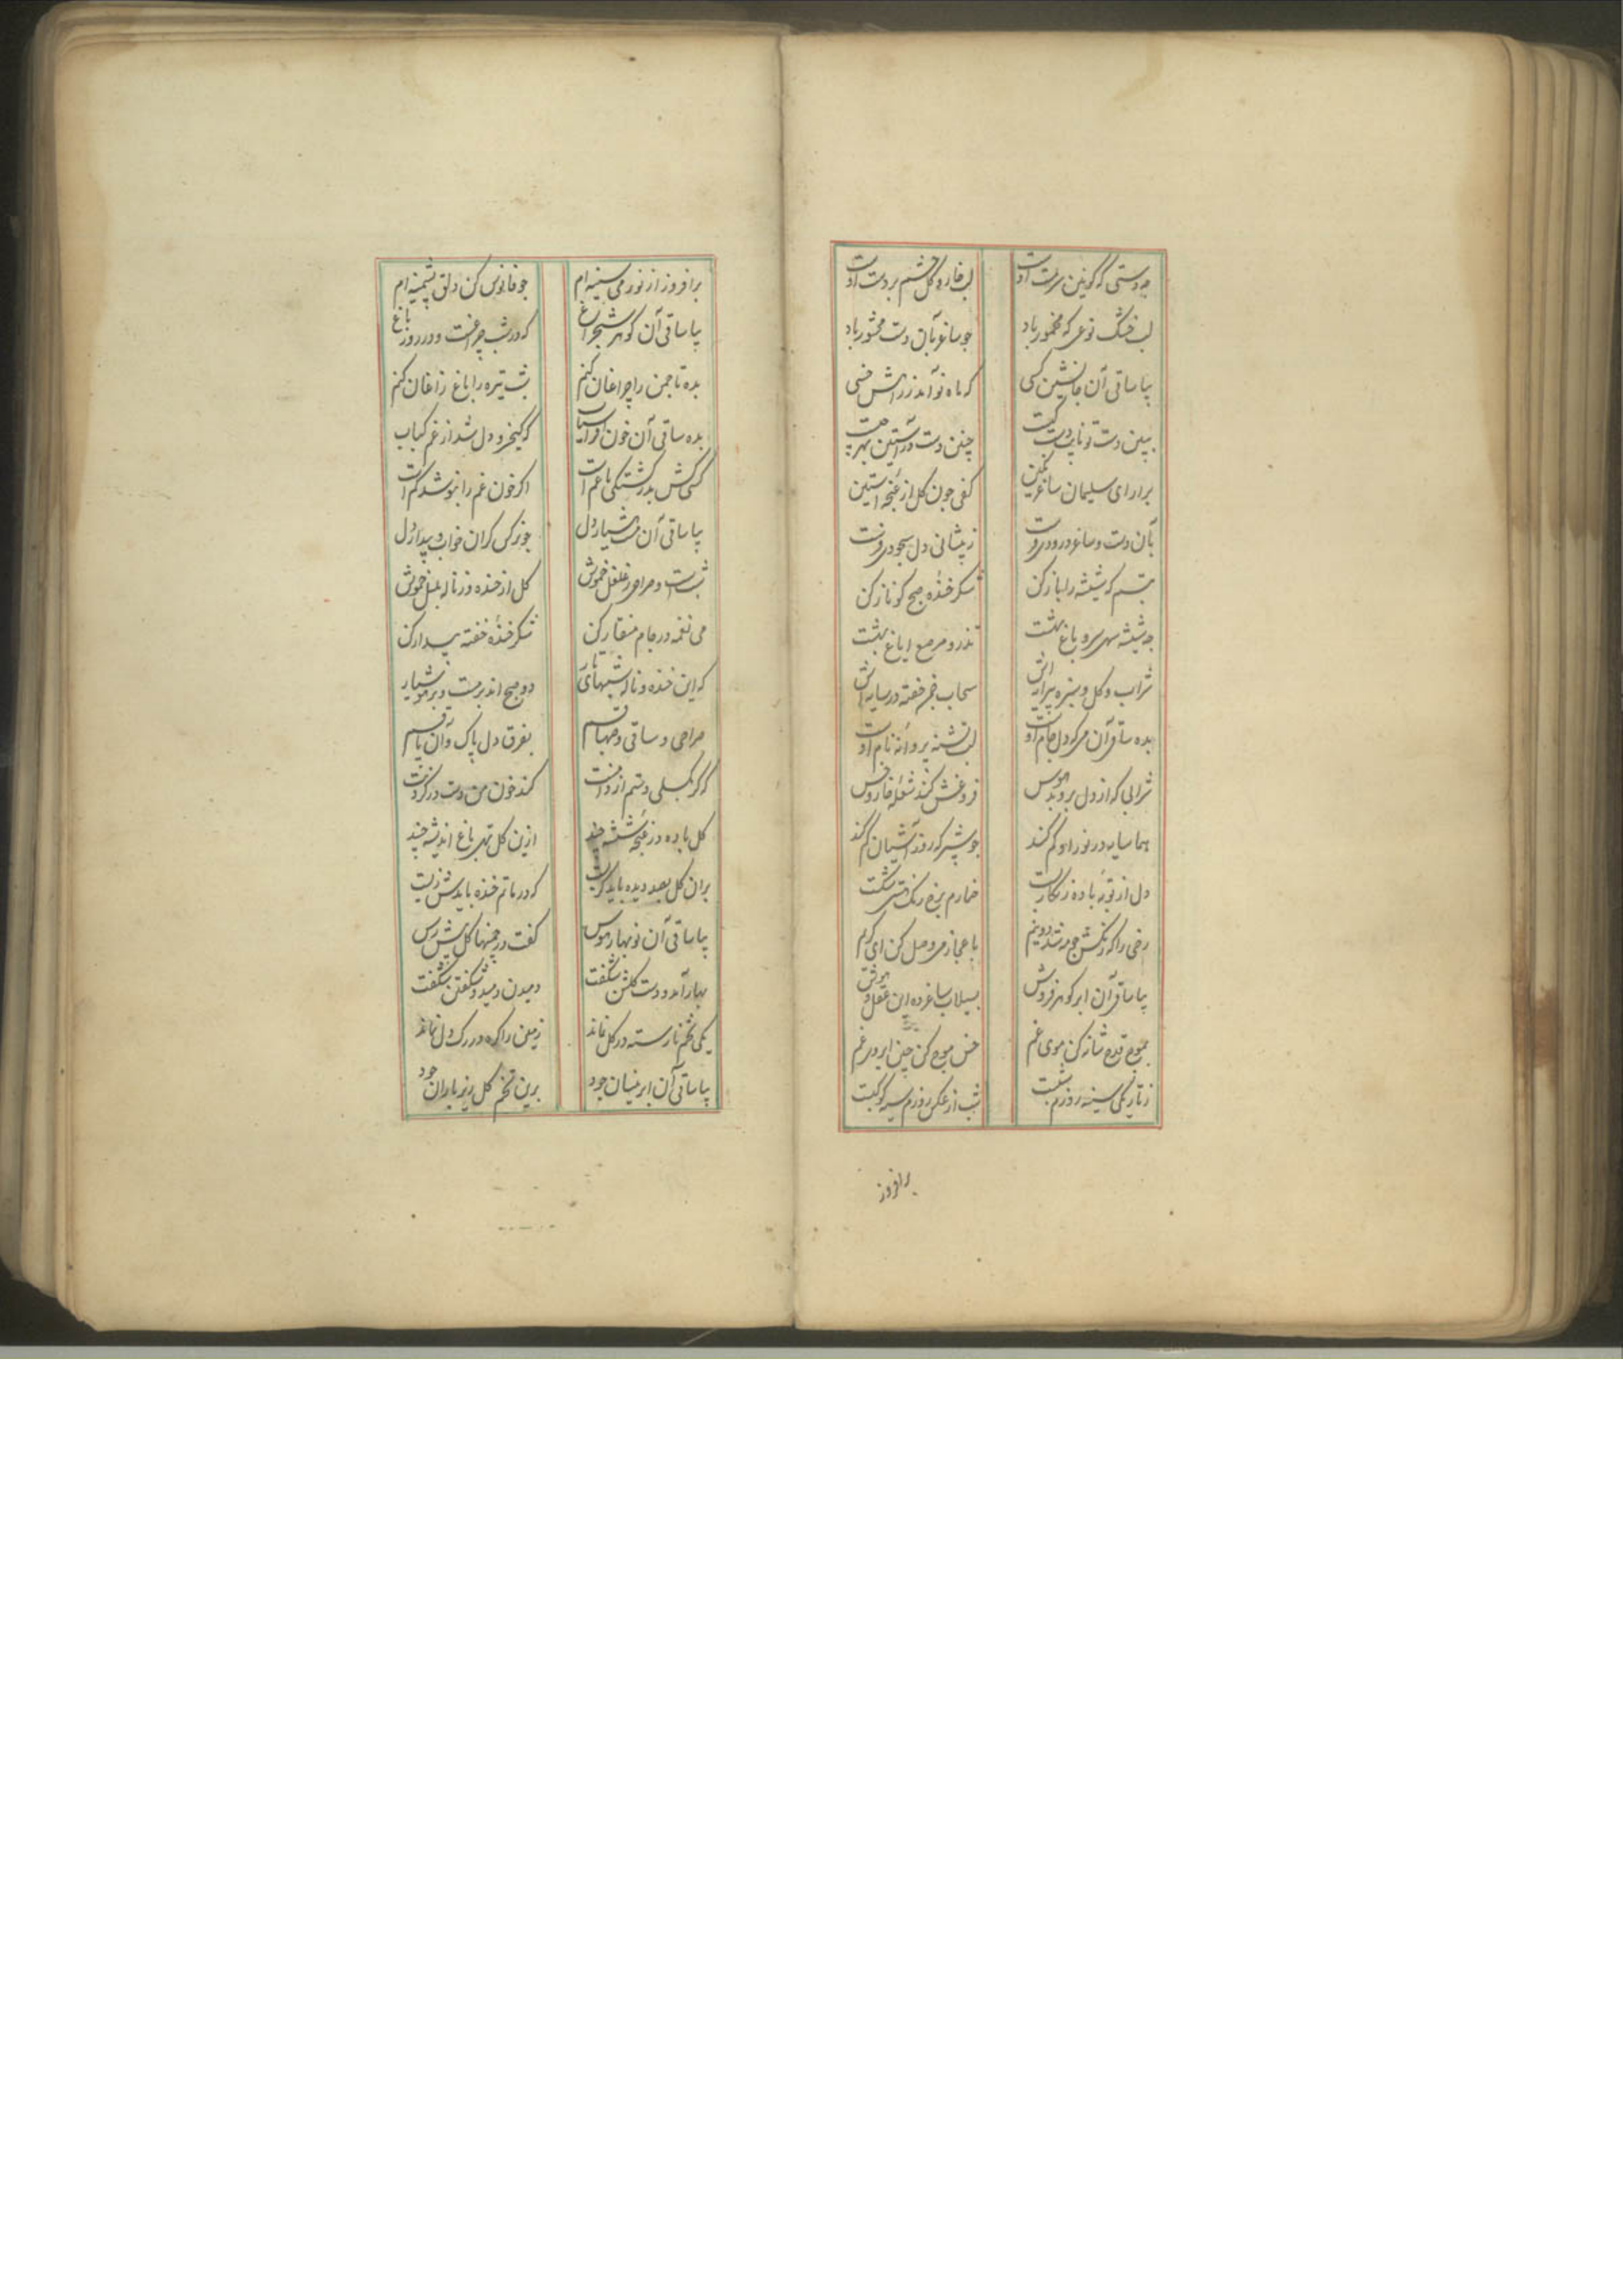 چه دستی که کونین سرمست اوست لب خار و کل چشم بر دست اوست
لب خشک نوعی که مخمور باد جو ساغر بآن دست محشور باد
بیا ساقی آن جانشین کسی که ماه نو آمد زراهش خسی
ببین دست تو نایب دست کیست چنین دست در آستین بهر چیست
برار ای سلیمان ساغر نکین کفی جون کل از غنجه آستین
بآن دست و ساغر درودی فرست ز پیشانی دل سجودی فرست
تبسم که شیشه را باز کن شکر خنده صبح کو ناز کن
چه شیشه سهی سرو باغ بهشت تذرو مرصع ایاغ بهشت
شراب و کل و سبزه پیرایه اش سحاب خضر خفته در سایه اش
بده ساقی آن می که دل جام اوست لب تشنه پروانه نام اوست
شرابی که از دل بروبد هوس فروغش کند شعله خار و خس
هما سایه در نور او کم کند جو شب‌پر که روز آشیان کم کند
دل از توبه باده زنکار بست خمارم برخ رنک مستی شکست
رخی را که رنکش جو مه شد دو نیم باعجاز می وصل کن ای کریم
بیا ساقی آن ابر کوهر فروش بسیلاب ساغر ده این عقل و هوش
بموج قدح شانه کن موی غم خس موج کن چین ابروی غم
ز تاریکی سینه روزم شبست شب از عکس روزم سیه کوکبست
برافروز
برافروز از نور می سینه ام جو فانوس کن دلق پشمینه ام
بیا ساقی آن کوهر شبچراغ که در شب چراغست و در روز باغ
بده تا چمن را چراغان کنم شب تیره را باغ زاغان کنم
بده ساقی آن خون افراسیاب که کیخسرو دل شد از غم کباب
کسی کش پدر کشتکی با غم است اکر خون غم را بنوشد کم است
بیا ساقی آن مست هشیار دل جو نرکس کران خواب و بیدار دل
شبست و صراحی ز غلغل خموش کل از خنده و ز ناله بلبل خموش
می نغمه در جام منقار کن شکر خنده خفته بیدار کن
که این خنده و ناله شبهای تار دو صبح اند بر مست و بر هوشیار
صراحی و ساقی و صهبا قسم بفرق دل پاک و آن پا قسم
که کر بکسلی دستم از دامنت کند خون من دست در کردنت
کل باده در غنجه شیشه چند ازین کل تهی باغ اندیشه چند
بران کل بصد دیده باید کریست که در ماتم خنده بایدش زیست
بیا ساقی آن نوبهار هوس کفت در چمنها کل پیش رس
بهار آمد و دست کلشن شکفت دمیدن دمید و شکفتن شکفت
یکی تخم نارسته در کل نماند زمین را کره در رک دل نماند
بیا ساقی آن ابر نیسان جود برین تخم کل ریز باران جود